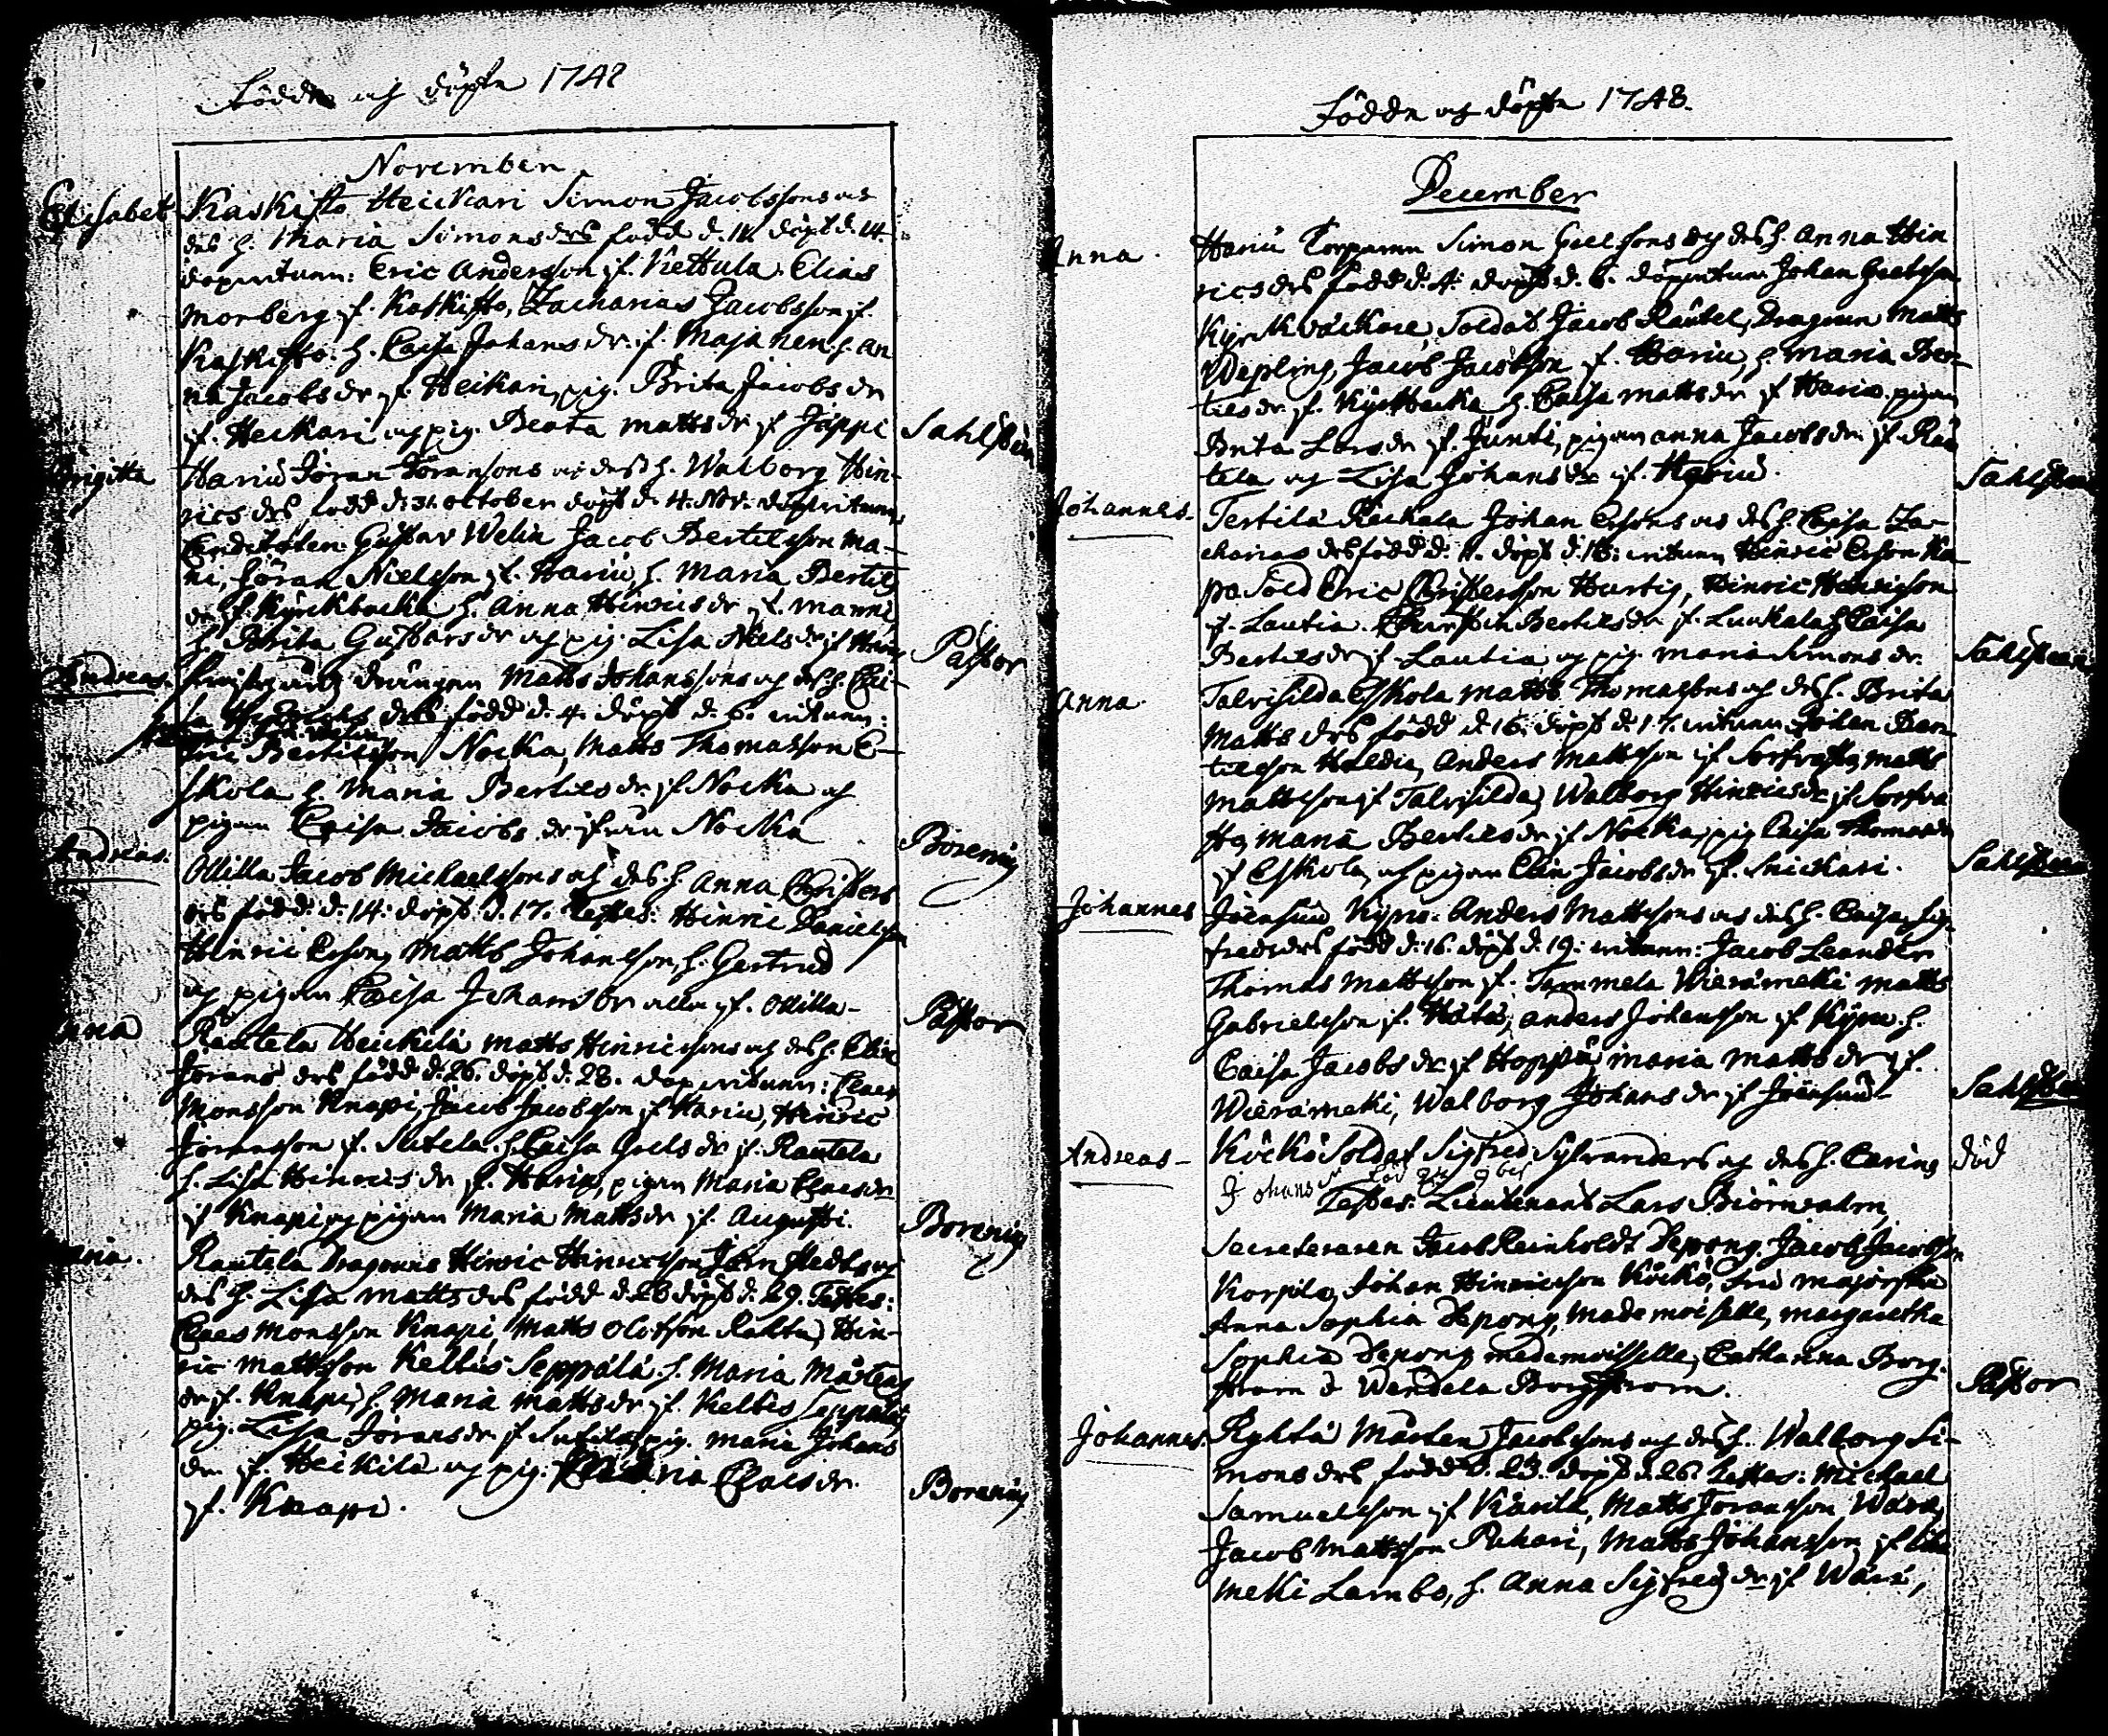 Födde och döpte 1748
November
Elisabet Kaskisto Heickari Simon Jacobssons och
des h. Maria Simonsdrs född d. 11. döpt d. 14.
dopwitnen: Eric Andersson jf. Kettula. Elias
Morberg jf. Kaskisto, Zacharias Jacobsson jf.
Kaskisto. h. Caisa Johansdr. jf. Majanen. h. An
na Jacobsdr jf. Heickari, pig. Brita Jacobsdr
jf. Heikari och pig. Beata Mattsdr jf Jäppi Sahlsten
Brigitta Hariu Jöran Jöranssons och des h. Walborg Hin-
rics drs född d. 31. October döpt d. 4. Nov. dopwitnen
Gustav Welin Jacob Bertilsson Ma-
ni, Jöran Nielsson jf. Hariu, h. Maria Bertils
dr jf. Kyrckbacka h. Anna Hinricsdr jf. Manni,
h. Brita Gustavsdr och pig. Lisa Nielsdr jf Hariu Pastor
Andreas. drängen Matts Johanssons och des h. Cai-
sa drs född d. 4. döpt d. 6. witnen:
Eric Bertilsson Nocka, Matts Thomasson E-
skola h. Maria Bertilsdr jf Nocka och
pigan Caisa Jacobsdr ifrån Nocka Borenius
Andreas. Ollilla Jacob Michaelssons och des h. Anna Christers
drs född d. 14. döpt d. 17. Testes: Hinric Danielsson
Hinric Ersson, Matts Johansson, h. Gertrud
och pigan Caisa Johansdr alla jf. Ollilla Pastor
Anna Rautela Heickilä Matts Hinricssons och des h. Elin
Jörans drs född d. 26. döpt d. 28. dopwitnen: Claes
Monsson Knapi, Jacob Jacobsson jf Hariu, Hinric
Joransson jf. Sutela. h. Caisa Grelsdr jf. Rautela
h. Lisa Hinricsdr jf. Hariu, pigan Maria Claesdr
jf Knapi och pigan Maria Mattsdr jf. Augusti. Borenius
Rautela Dragouns Hinric Hinricsson Järnstedts och
des h. Lisa Mattsdrs född d. 28 döpt d. 29. Testes:
Claes Monsson Knapi, Matts Olofsson Rahtu, Hin-
ric Mattsson Keltis Seppälä. h. Maria Mårtens
dr jf. Knapi, h. Maria Mattsdr jf. Keltis Seppälä
pig. Lisa Joransdr jf Sutela, pig. Maria Johans
dr. jf. Heickilä och pig. Maria Claesdr.
jf. Knapi. Borenius
Födde och döpte 1748.
December
Anna. Hariu Torparen Simon Grelssons och des h. Anna Hin
ricsdrs född d. 4. döpt d. 6. dopwitnen Johan Grelsson
Kyrckväckare, Soldat Jacob Rautel, Dragoun Matts
Wepling, Jacob Jacobsson jf. Hariu, h. Maria Ber-
tilsdr jf. Kyrckbacka h. Caisa Mattsdr jf Hariu. pigan
Brita Larsdr jf. Junti, pigan Anna Jacobsdr jf. Rau
tela och Lisa Johansdr jf. Hariu. Sahlsten
Johannes. Tertilä Räckala Johan Erssons och des h. Caisa Za-
charias drs född d. 11. döpt d. 16: witnen Hinric Ersson Ka
pa Sold Eric Christersson Hurtig, Hinric Hinricsson
jf. Lautia. Christin Bertilsdr jf. Luukala, h. Caisa
Bertilsdr jf Lautia och pig. Maria Simonsdr. Sahlsten
Anna Talvisilda Eskola Matts Thomassons och des h. Brita
Matts drs född d. 16. döpt d. 17. witnen Johan Ber-
tilsson Haldia, Anders Mattsson jf Matts
Mattsson jf Talvisilda, Walborg Hinricsdr jf
Maria Bertilsdr jf Nocka, pig Caisa Thomasdr
jf Eskola, och pigan Elin Jacobsdr jf. Snickari. Sahlsten
Johannes Joensuu Kyrö. Anders Mattssons och des h. Caisa Sig-
fredsdrs född d. 16. döpt d. 19. witnen: Jacob Leander
Thomas Mattsson jf. Tammela Wieramäki Matts
Gabrielsson jf. Anders Johansson jf Kyrö. h.
Caisa Jacobsdr jf Hoppu, Maria Mattsdr jf.
Wieramäki, Walborg Johansdr jf Joensuu Sahlsten
Andreas Köckö Soldat Sigfred Sylvanders och des h. Carins död
Johansdr föd
Testes: Lieutenant Lars Biörnealm,
Secreteraren Jacob Reinholdt Depong. Jacob Jacobsson
Korpila, Johan Hinricsson Köckö, fru Majorskan
Anna Sophia Depong, Mademoiselle, Margaretha
Sophia Depong mademoisselle, Catharina Borg-
strom & Wendela Borgstrom. Pastor
Johannes. Ryhtä Mårten Jacobssons och des h. Walborg Si-
mons drs född d. 23. döpt d. 26. Testes: Michael
Samuelsson jf Matts Joransson Wära,
Jacob Mattsson Pukari, Matts Johansson jf
meki Lambo, h. Anna Sigfredsdr jf Wära,